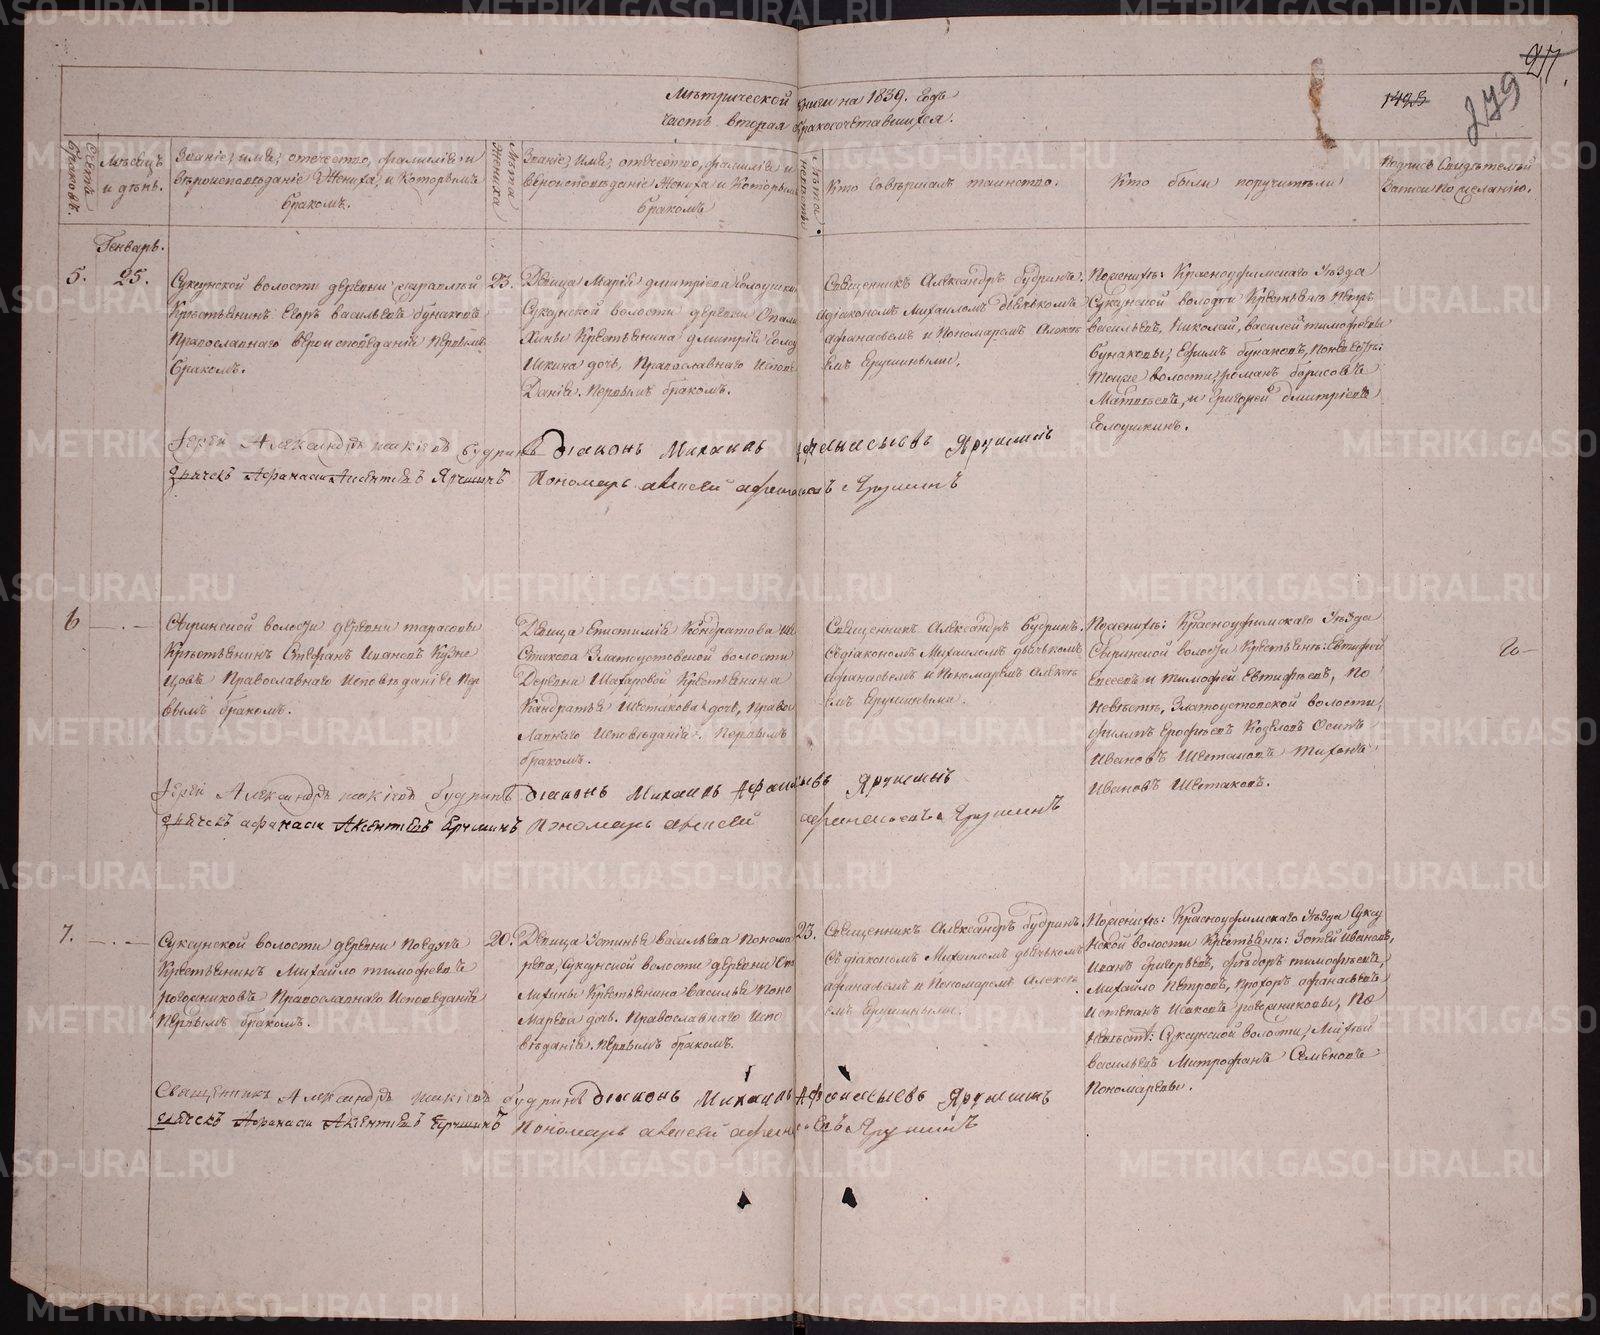 METRIKI.GASO-URAL.RU
217.
279
1493
Мѣтрической книги на 1839. Годъ
Часть вторая бракосочетавшихся.
Счетъ браковъ.
Мѣсяцъ и дѣнь.
Званіе, имя, отечество, фамилія и
вѣроисповѣданіе Жениха, и которымъ
бракомъ.
Лѣта жениха
Званіе, имя, отечество, фамилія и
вѣроисповѣданіе Невѣсты и которымъ
бракомъ
Лѣта невѣсты
Кто Совѣршалъ таинство.
Кто были поручители
Подпись Свидѣтелей
Записи по желанію.
Генварь.
5.
25.
Суксунской волости дѣревни
Крестьянинъ Егоръ Васильевъ бунаковъ
Православнаго вѣроисповѣданія Первымъ
бракомъ.
23.
Дѣвица Марія дмитріева
Суксунской волости дѣревни Опали
хины Крестьянина дмитрія Голоу
шкина дочь, Православнаго исповѣ
данія. Первымъ бракомъ.
Священникъ Александръ будринъ.
съ діакономъ Михаиломъ дьячькомъ
афанасьемъ и Пономаремъ Алексѣ
емъ Ерушиными.
По женихѣ: Красноуфимскаго Уѣзда
Суксунской волости Крестьяне Петръ
васильевъ, Николай, василей тимофеевы
бунаковы, Ефимъ бунаковъ, По невѣстѣ:
Тоиже волости, романъ борисовъ
Матвѣевъ, и григорей дмитріевъ
Голоушкинъ.
Іерей Александръ іакововъ будринъ
діаконъ Михаилъ Афанасьевъ Ярушинъ
дьячекъ Афанаси Аксентіевъ Ярушинъ
Пономарь алексей афанасьевъ Ярушинъ
6
—.—
Сыринской волости дѣревни тарасовы
Крѣстьянинъ Стефанъ Ивановъ Кузне
цовъ Православнаго Исповѣданія Пер
вымъ бракомъ.
Дѣвица Епистимія Кондратова Ше
стакова Златоустовской волости
Деревни Шатаровой Крестьянина
Кандратья Шестакова дочь, Право
славнаго Исповѣданія. Первымъ
бракомъ.
Священникъ Александръ Будринъ.
Съ діакономъ Михаиломъ дьячькомъ
афанасьемъ и Пономаремъ Алексѣ
емъ Ерушиными.
По женихѣ: Красноуфимскаго Уѣзда
Сыринской волости Крестьяне: Евтифей
Елесеевъ и тимофей Евтифѣевъ, По
невѣстѣ, Златоустовской волости,
филипъ Ерофѣевъ Козловъ Осипъ
Ивановъ Шестаковъ тихонъ
Ивановъ Шестаковъ.
Іерей Александръ іакововъ будринъ
діаконъ Михаилъ Афанасьевъ Ярушинъ
дьячекъ афанаси Аксентіевъ Ерушинъ
Пономарь алексей афанасьевъ Ярушинъ
7.
—.—
Суксунской волости дѣревни Поѣдугъ
Крестьянинъ Михайло тимофеевъ
Православнаго Исповѣданія
Первымъ бракомъ.
20.
Дѣвица Устинья васильева Понома
рева, Суксунской волости дѣревни Опа
лихины Крестьянина василья Поно
марева дочь. Православнаго Испо
вѣданія. первымъ бракомъ.
23.
Священникъ Александръ будринъ.
Съ діакономъ Михаиломъ дьячькомъ
афанасьемъ и Пономаремъ Алексѣ
емъ Ерушиными.
По женихѣ: Красноуфимскаго Уѣзда Суксу
нской волости Крестьяне: Зотей Ивановъ,
Иванъ Григорьевъ, фѣдоръ тимофѣевъ,
Михайло Пѣтровъ, Прохоръ афанасьевъ
и степанъ Исаковъ, По
Невѣстѣ: Суксунской волости,
васильевъ Митрофанъ Семеновъ
Пономаревы.
Священникъ Александръ іакововъ будринъ
діаконъ Михаилъ Афанасьевъ Ярушинъ
дьячекъ Афанаси Аксентіевъ Ерушинъ
Пономарь алексей афанасьевъ Ярушинъ